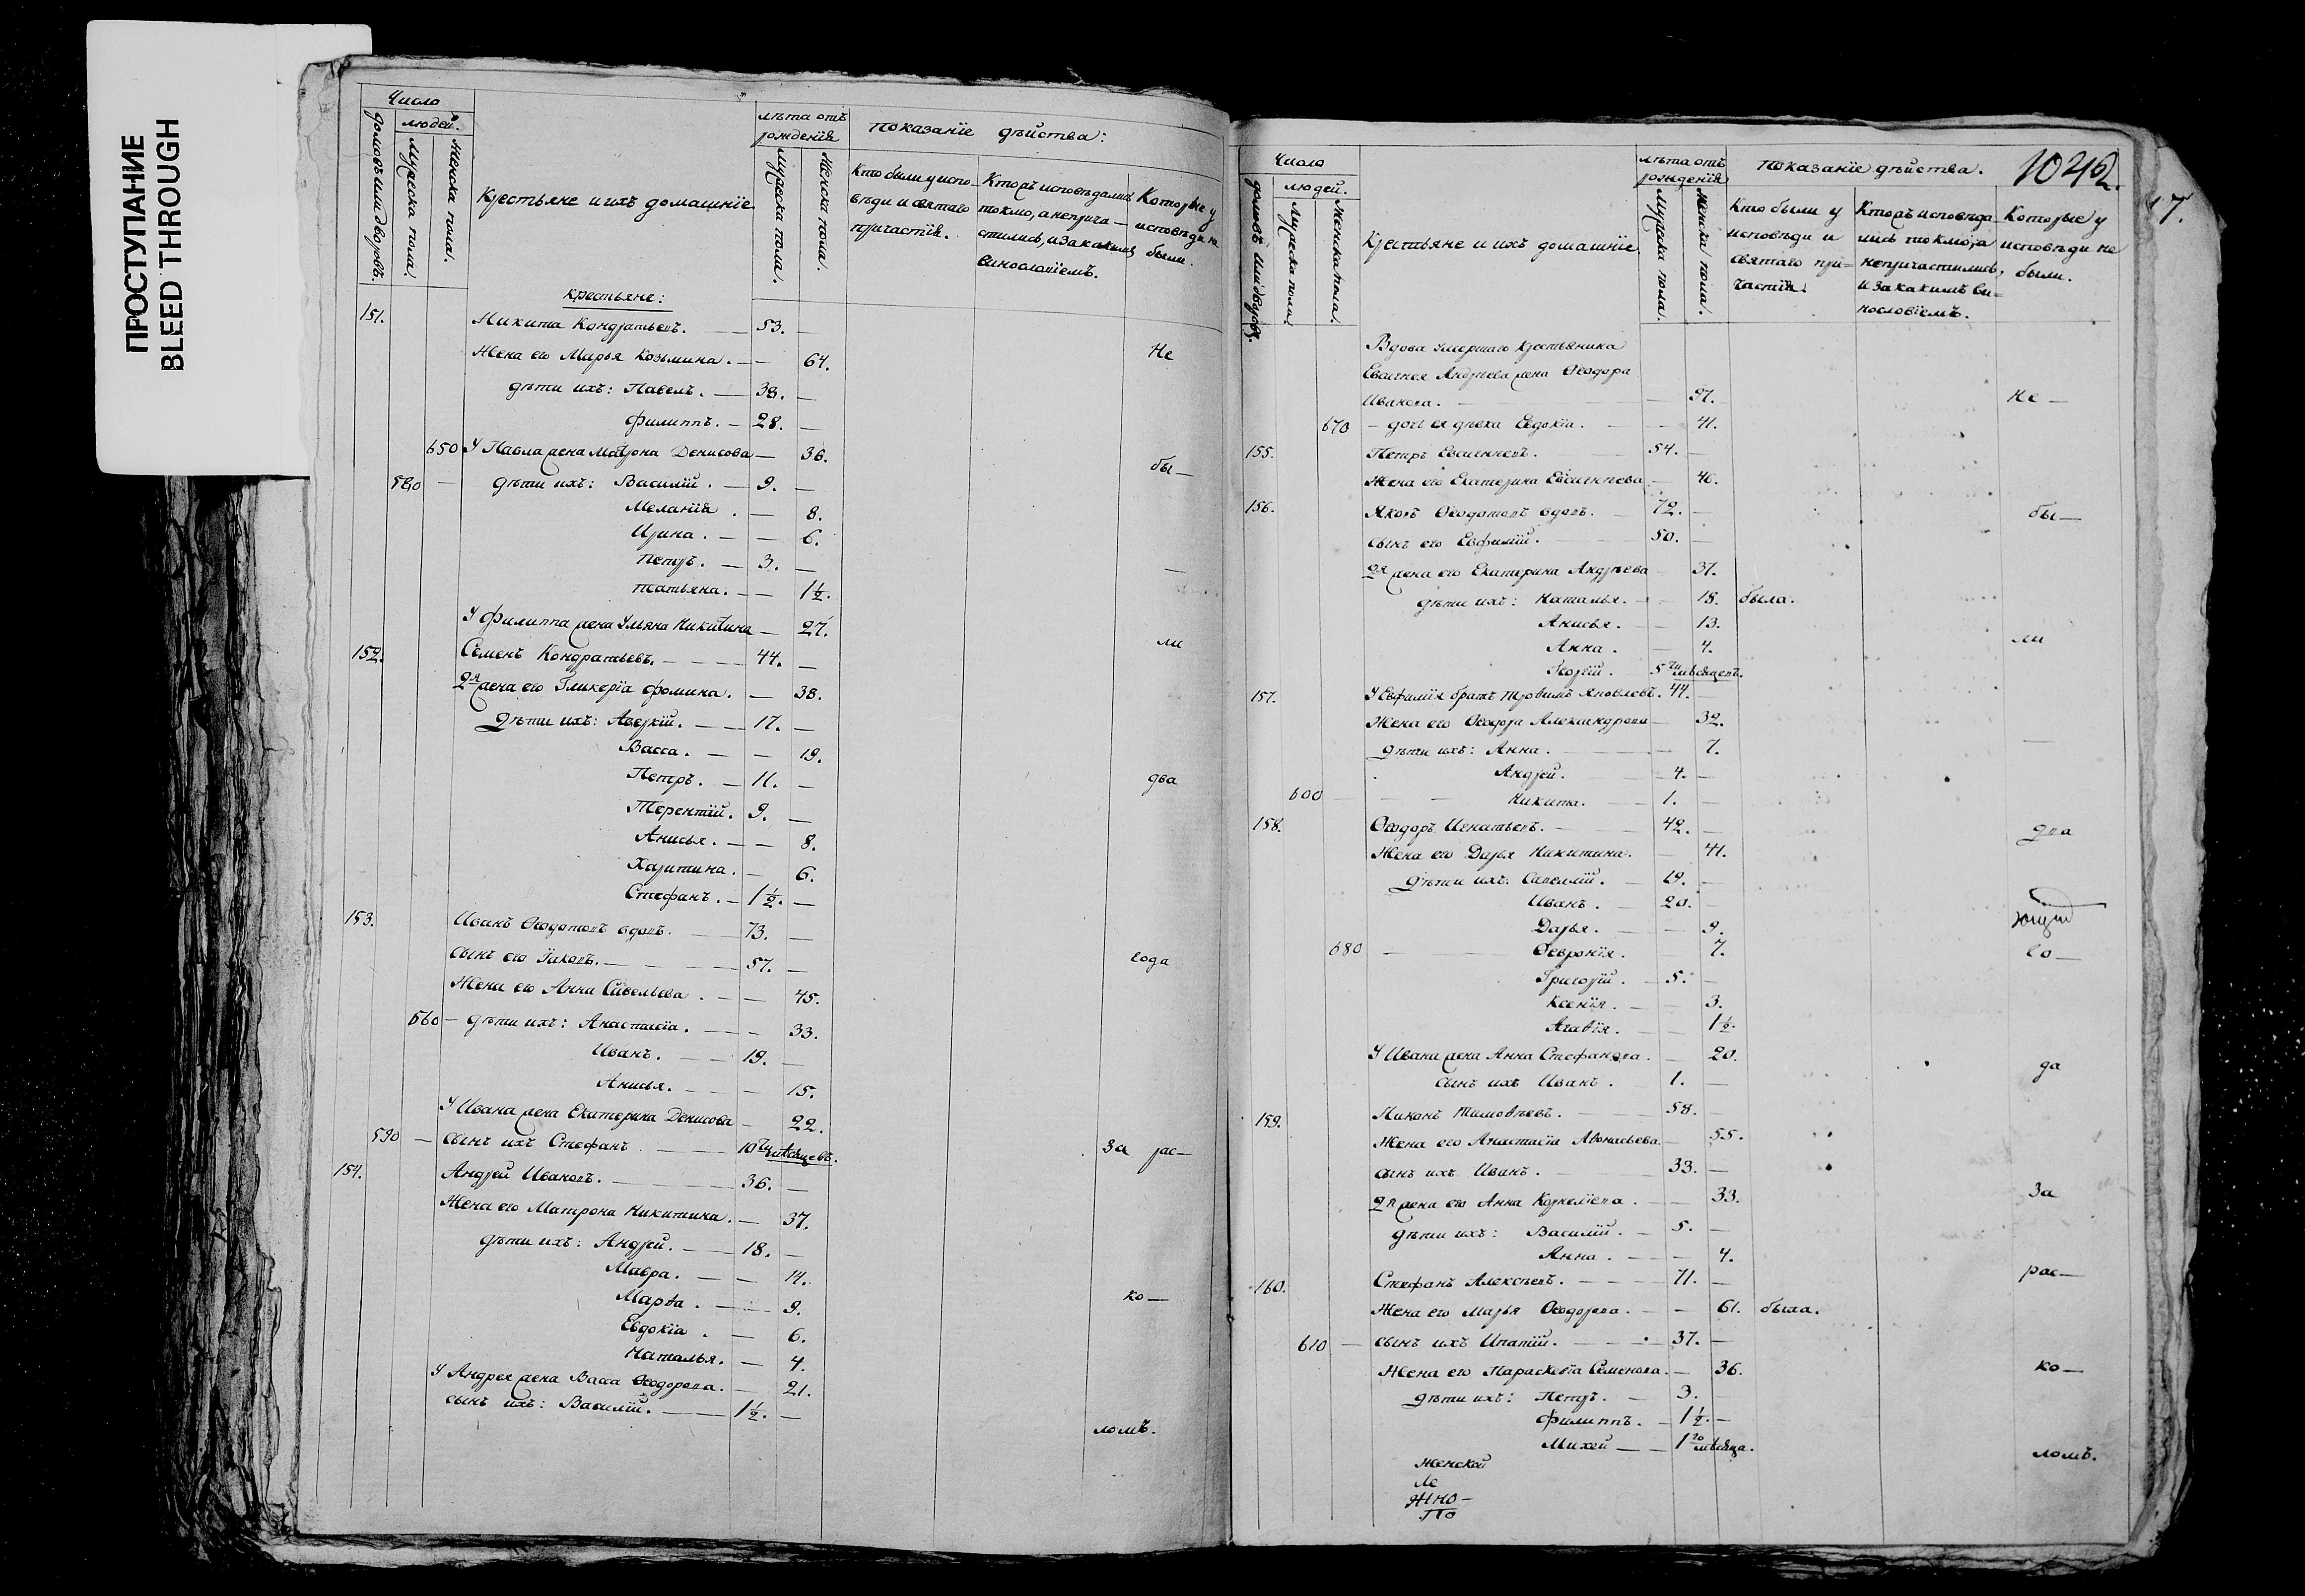 ПРОСТУПАНИЕ
BLEED THROUGH
Число
людей.
домовъ или дворовъ.
Мужеска пола.
Женска пола.
Крестьяне и ихъ домашнїе
лѣта отъ рожденїя
Мужеска пола.
Женска пола.
Показанїе дѣйства:
Кто были у испо-
вѣди и святаго
причастїя.
Кто жъ исповѣдались
токмо, а неприча-
стились, и за какимъ
винословїемъ.
Которые у
исповѣди не
были.
Крестьяне:
151. Никита Кондратьевъ. — 53. —
Жена его Марья Козьмина. — 64. Не
дѣти ихъ: Павелъ. — 38. —
Филиппъ. — 28. —
650 У Павла жена Матрона Денисова — 36. бы—
580 — дѣти ихъ: Василїй. — 9. —
Меланїя. — 8.
Ирина. — — 6.
Петръ. — 3. —
Татьяна. — — 1½.
У Филиппа жена Ульяна Никитина — 27. ли
152. Семенъ Кондратьевъ. — 44. —
2я жена его Гликерїа Фомина. — 38.
Дѣти ихъ: Аверкїй. — 17. —
Васса. — — 19.
Петръ. — 11. — два
Терентїй. 9. —
Анисья. — — 8.
Харитина. — 6.
Стефанъ. — 1½. —
153. Иванъ Ѳеодотовъ вдовъ. 73. —
Сынъ его Іаковъ. — 57. — года
Жена его Анна Савельева. — — 45.
660 — дѣти ихъ: Анастасїа. — — 33.
Иванъ. — 19. —
Анисья. — — 15.
У Ивана жена Екатерина Денисова — 22.
590 — Сынъ ихъ Стефанъ. — 10ти мѣсяцевъ. За рас—
154. Андрей Ивановъ. — 36. —
Жена его Матрона Никитина. — 37.
дѣти ихъ: Андрей. — 18. —
Мавра. — — 14.
Марѳа. — 9. ко—
Евдокїа. — 6.
Наталья. — 4.
У Андрея жена Васса Ѳеодорова. — 21.
сынъ ихъ: Василїй. — 1½. —
ломъ.
1042.
17.
Число
людей.
домовъ или дворовъ.
Мужеска пола.
Женска пола.
Крестьяне и ихъ домашнїе
лѣта отъ рожденїя
Мужеска пола.
Женска пола.
Показанїе дѣйства.
Кто были у
исповѣди и
святаго при=
частїя.
Кто жъ исповѣда-
лись токмо, а
непричастились,
и за какимъ ви=
нословїемъ.
Которые у
исповѣди не
были.
Вдова умершаго крестьянина
Евсигнея Андреева жена Ѳеодора
Иванова. — 97. Не —
670 — дочь ея дѣвка Евдокїа. — 41.
155. Петръ Евсигнеевъ. 54. —
Жена его Екатерина Евсигнеева — 46.
156. Яковъ Ѳеодотовъ вдовъ. 72. — бы—
Сынъ его Евфимїй. 50. —
2я жена его Екатерина Андреева 37.
дѣти ихъ: Наталья. — 18. была.
Анисья. — 13.
Анна. — 4. ли
Георгїй. 5ти мѣсяцевъ.
157. У Евфимїя братъ Трофимъ Яковлевъ. 44.
Жена его Ѳеодора Александрова — 32.
дѣти ихъ: Анна. — 7. —
Андрей. 4. —
600 — — Никита. 1. —
158. Ѳеодоръ Игнатьевъ. 42. — два
Жена его Дарья Никитина. — 41.
Дѣти ихъ: Савелїй. — 19. —
Иванъ. — 20. —
Дарья. — 9.
680 — Ѳевронїя. 7. го—
Григорїй. — 5. —
Ксенїя. — 3.
Агаѳїя. — 1½.
У Ивана жена Анна Стефанова. — 20.
сынъ ихъ Иванъ. 1. — да
159. Никонъ Тимоѳеевъ. — 58. —
Жена его Анастасїа Аѳонасьева. — 55.
сынъ ихъ Иванъ. — 33. —
2я жена его Анна Корнелїева. — 33. За
дѣти ихъ: Василїй. — 5. —
Анна. — — 4.
160. Стефанъ Алексѣевъ. — 71. — рас—
Жена его Марья Ѳеодорова. — — 61. была.
610 — Сынъ ихъ Ипатїй. — 37. —
Жена его Параскева Семенова. — 36. ко—
дѣти ихъ: Петръ. — 3. —
Филиппъ. — 1½. —
Михей — — 1го мѣсяца.
ломъ.
Женской